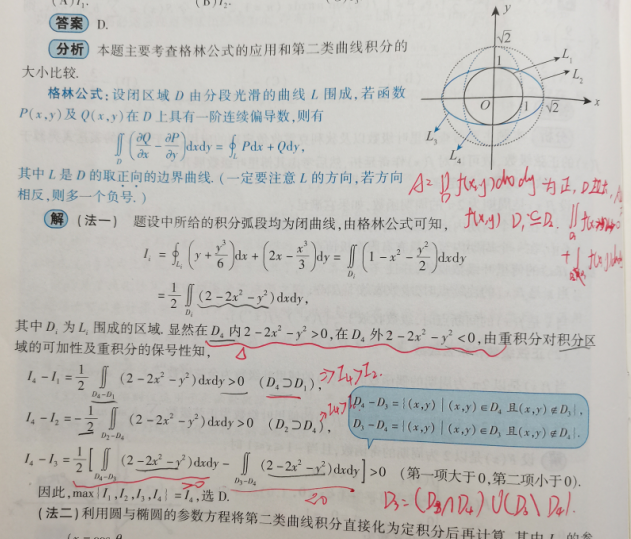 (A)I₁. (B)I₂.
答案 D.
分析 本题主要考查格林公式的应用和第二类曲线积分的
大小比较.
格林公式:设闭区域 D 由分段光滑的曲线 L 围成,若函数
P(x,y)及 Q(x,y)在 D 上具有一阶连续偏导数,则有
∬_D (∂Q/∂x - ∂P/∂y)dxdy = ∮_L Pdx + Qdy,
其中 L 是 D 的取正向的边界曲线.(一定要注意 L 的方向,若方向
相反,则多一个负号.)
y
√2
1
L₁
L₂
O
1
√2
x
L₃
L₄
f(x,y)dxdy 为正, D
f(x,y) D₁⊆D.
解 (法一) 题设中所给的积分弧段均为闭曲线,由格林公式可知,
I_i = ∮_{L_i} (y + y³/6)dx + (2x - x³/3)dy = ∬_{D_i} (1 - x² - y²/2)dxdy
= 1/2 ∬_{D_i} (2 - 2x² - y²)dxdy,
其中 D_i 为 L_i 围成的区域. 显然在 D₄ 内 2 - 2x² - y² > 0,在 D₄ 外 2 - 2x² - y² < 0,由重积分对积分区
域的可加性及重积分的保号性知,
I₄ - I₁ = 1/2 ∬_{D₄-D₁} (2 - 2x² - y²)dxdy > 0 (D₄⊃D₁), ⇒ I₄ > I₂.
I₄ - I₂ = - 1/2 ∬_{D₂-D₄} (2 - 2x² - y²)dxdy > 0 (D₂⊃D₄),
D₄ - D₃ = {(x,y) | (x,y) ∈ D₄ 且(x,y) ∉ D₃},
D₃ - D₄ = {(x,y) | (x,y) ∈ D₃ 且(x,y) ∉ D₄}.
I₄ - I₃ = 1/2 [∬_{D₄-D₃} (2 - 2x² - y²)dxdy - ∬_{D₃-D₄} (2 - 2x² - y²)dxdy] > 0 (第一项大于0,第二项小于0).
>0
≤0
因此,max{I₁,I₂,I₃,I₄} = I₄,选 D.
D₃ = (D₃∩D₄) ∪ (D₃\D₄).
(法二)利用圆与椭圆的参数方程将第二类曲线积分直接化为定积分后再计算.其中 I₁ 的参